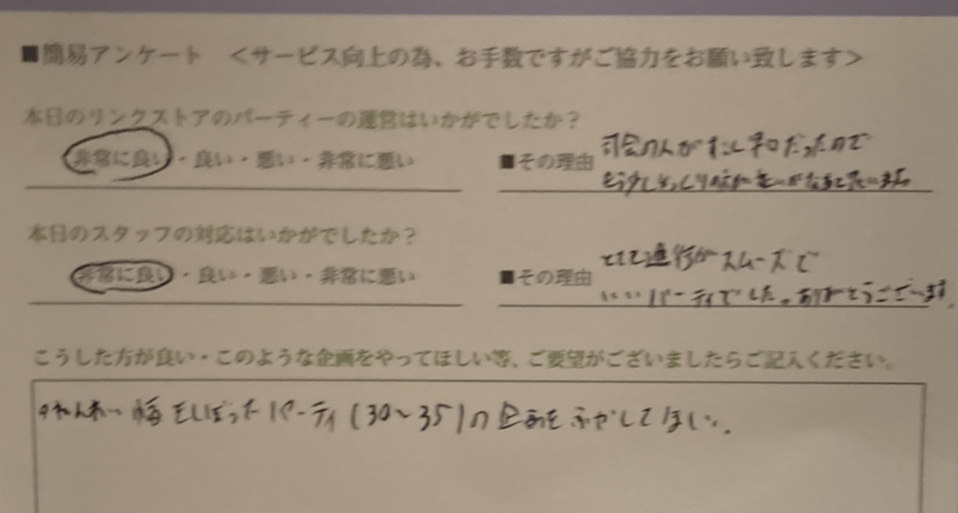 ■簡易アンケート <サービス向上の為、お手数ですがご協力をお願い致します>
本日のリンクストアのパーティーの運営はいかがでしたか?
非常に良い・良い・悪い・非常に悪い
■その理由 司会の人が だったので
もう少し
本日のスタッフの対応はいかがでしたか?
非常に良い・良い・悪い・非常に悪い
■その理由 とても進行がスムーズで
いいパーティでした。ありがとうございます。
こうした方が良い・このような企画をやってほしい等、ご要望がございましたらご記入ください。
をしぼったパーティ(30~35)の企画をふやしてほしい。